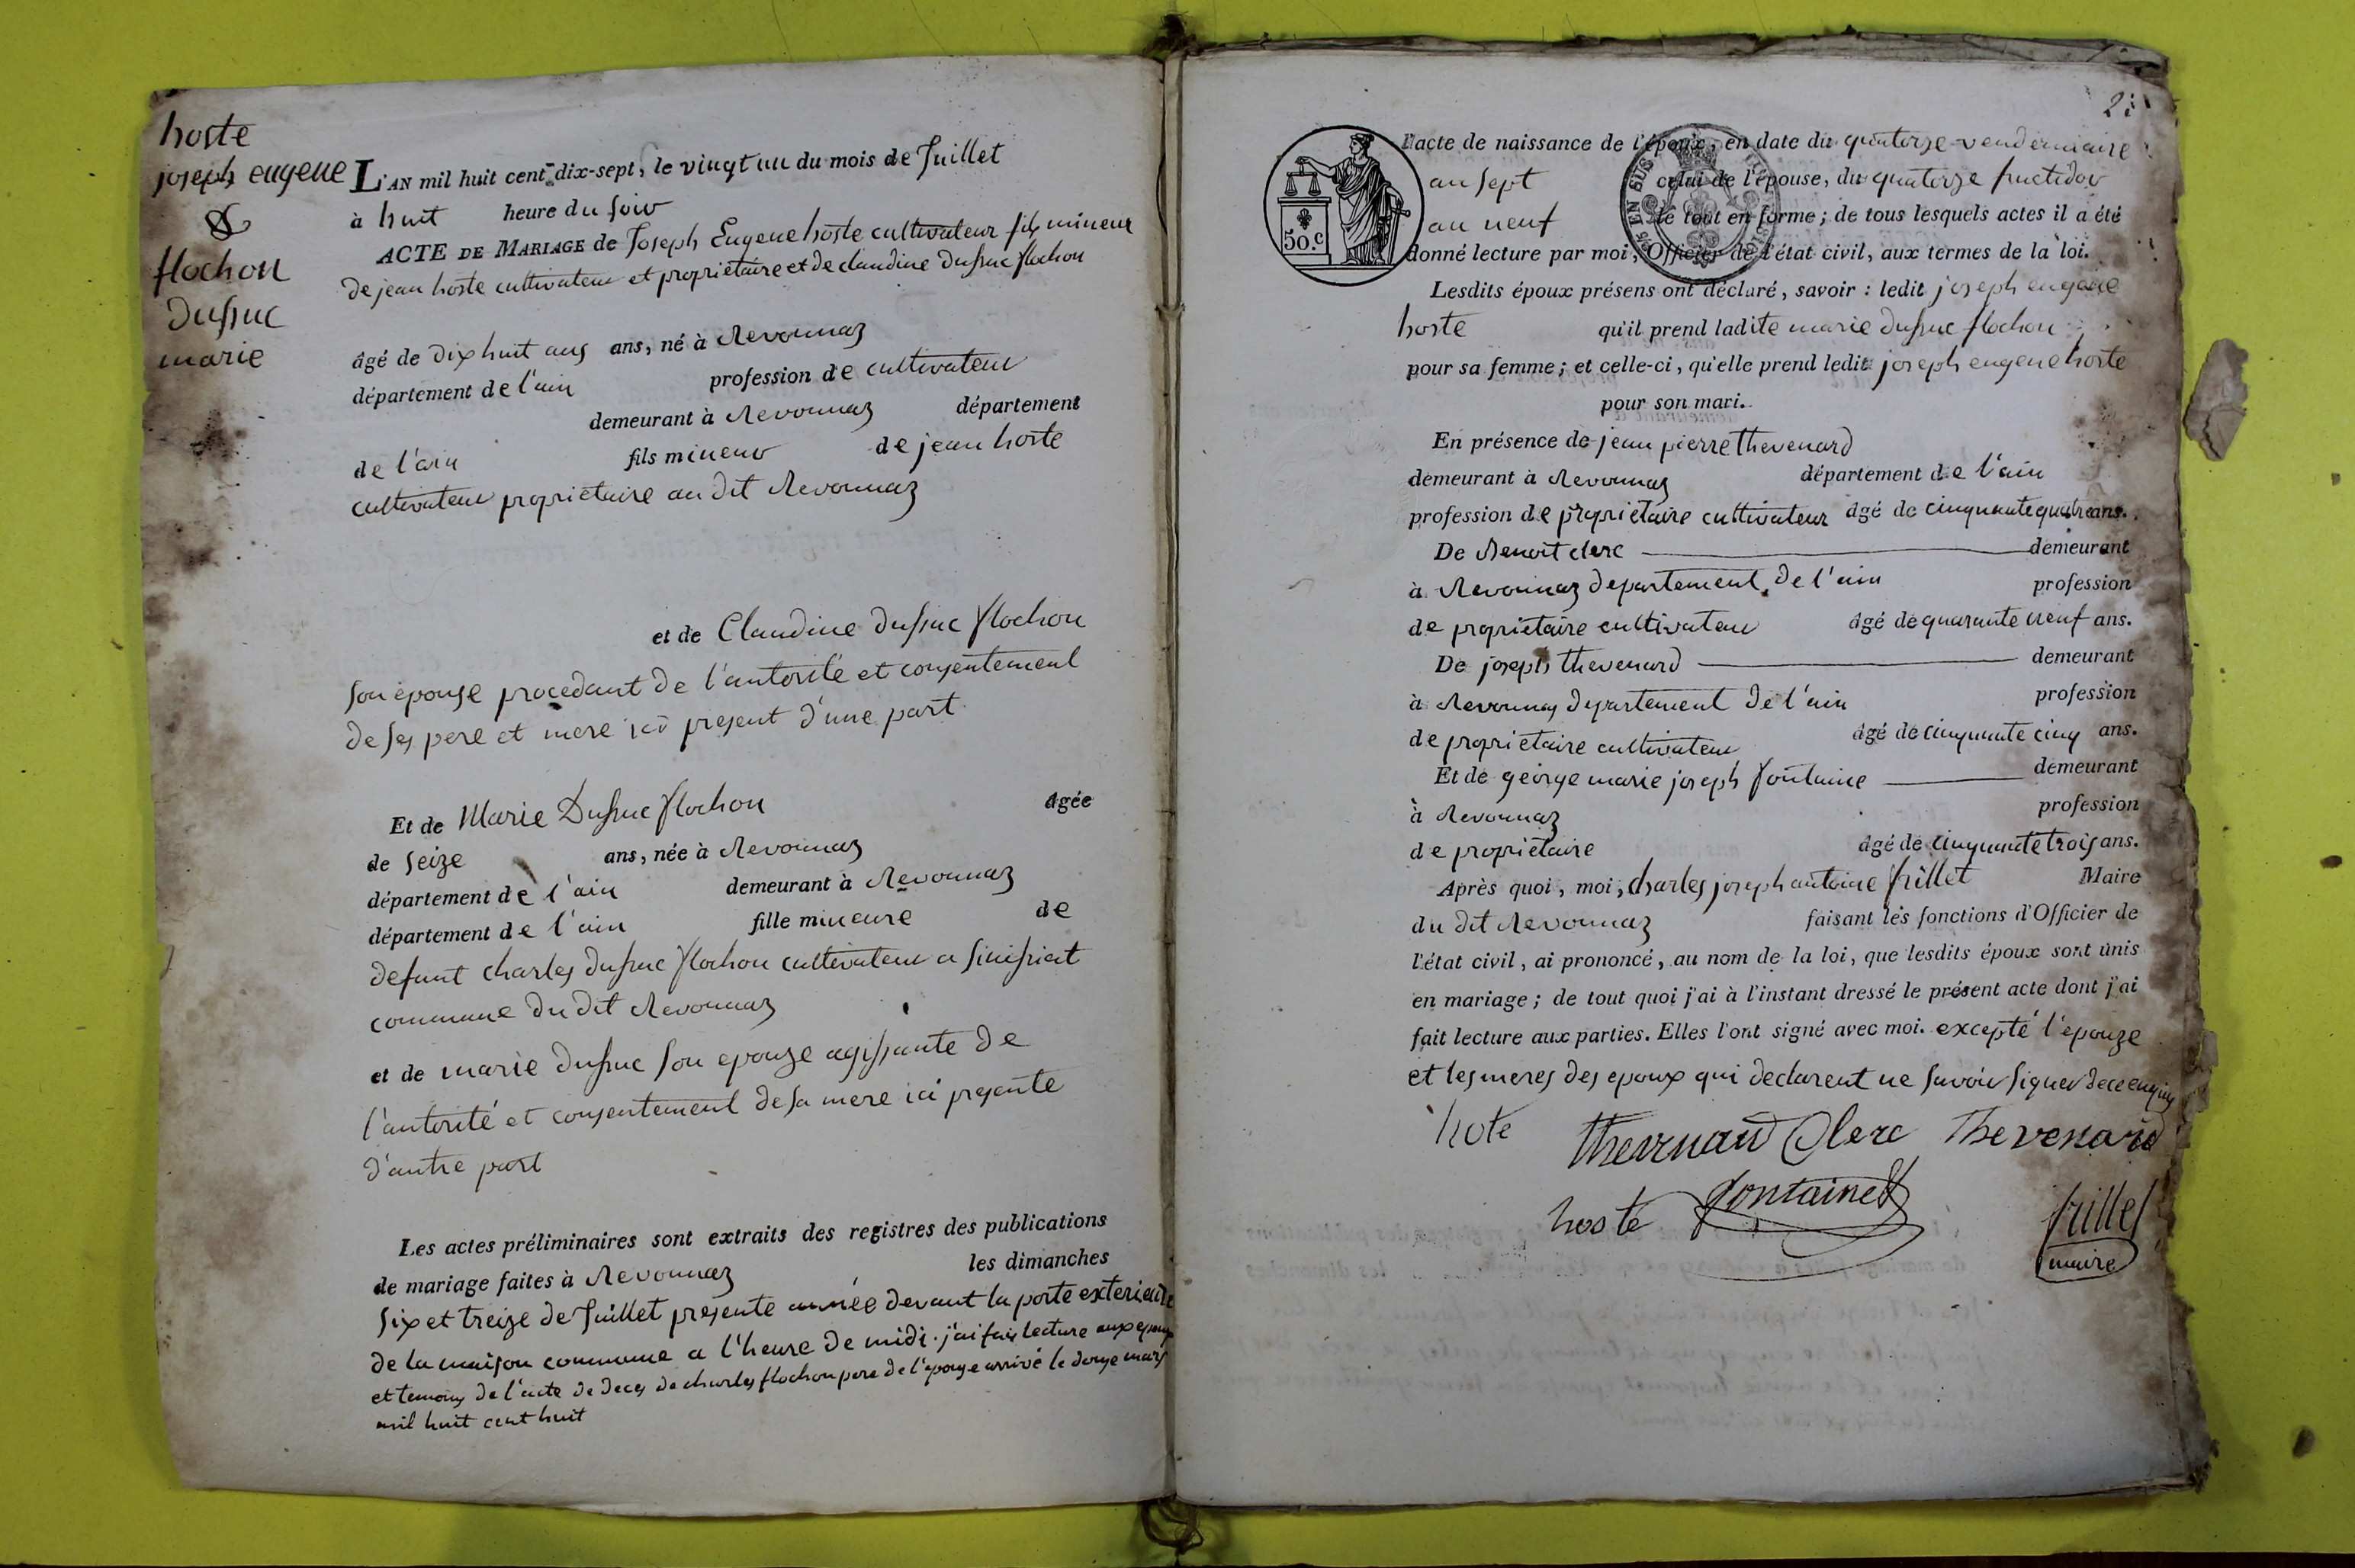 hoste
joseph eugene
&
flochon
dufsuc
marie
L'AN mil huit cent dix-sept, le vingt un du mois de Juillet
à huit heure du soir
ACTE DE MARIAGE de Joseph Eugene hoste cultivateur fils mineur
de jean hoste cultivateur et proprietaire et de claudine dufsuc flochon
âgé de dix huit ans ans, né à Revonnaz
département de l'ain profession de cultivateur
demeurant à Revonnaz département
de l'ain fils mineur de jean hoste
cultivateur proprietaire au dit Revonnaz
et de Claudine dufsuc flochon
son epouse procedant de l'autorité et consentement
de ses pere et mere ici present d'une part
Et de Marie Dufsuc flochon âgée
de seize ans, née à Revonnaz
département de l'ain demeurant à Revonnaz
département de l'ain fille mineure de
defunt charles dufsuc flochon cultivateur a
commune du dit Revonnaz
et de marie dufsuc son epouse agissante de
l'autorité et consentement de sa mere ici presente
d'autre part
Les actes préliminaires sont extraits des registres des publications
de mariage faites à Revonnaz les dimanches
six et treize de Juillet presente année devant la porte exterieure
de la maison commune a l'heure de midi. j'ai fais lecture aux epoux
et temoins de l'acte de deces de charles flochon pere de l'epouse arrivé le douze mars
mil huit cent huit
l'acte de naissance de l'époux, en date du quatorze vendemiaire
an sept celui de l'épouse, du quatorze fructidor
an neuf le tout en forme ; de tous lesquels actes il a été
donné lecture par moi, Officier de l'état civil, aux termes de la loi.
50.c
EN SUS
Lesdits époux présens ont déclaré, savoir : ledit joseph eugene
hoste qu'il prend ladite marie dufsuc flochon
pour sa femme ; et celle-ci, qu'elle prend ledit joseph eugene hoste
pour son mari.
En présence de jean pierre thevenard
demeurant à Revonnaz département de l'ain
profession de proprietaire cultivateur âgé de cinquante quatre ans.
De Benoit clerc demeurant
à Revonnaz departement de l'ain profession
de proprietaire cultivateur âgé de quarante neuf ans.
De joseph thevenard demeurant
à Revonnaz departement de l'ain profession
de proprietaire cultivateur âgé de cinquante cinq ans.
Et de george marie joseph fontaine demeurant
à Revonnaz profession
de proprietaire âgé de cinquante trois ans.
Après quoi, moi, charles joseph antoine frillet Maire
du dit Revonnaz faisant les fonctions d'Officier de
l'état civil, ai prononcé, au nom de la loi, que lesdits époux sont unis
en mariage ; de tout quoi j'ai à l'instant dressé le présent acte dont j'ai
fait lecture aux parties. Elles l'ont signé avec moi. excepté l'epouze
et les meres des epoux qui declarent ne savoir signer de ce enquis
hote thevenard Clerc Thevenard
hoste fontaine frillet
maire